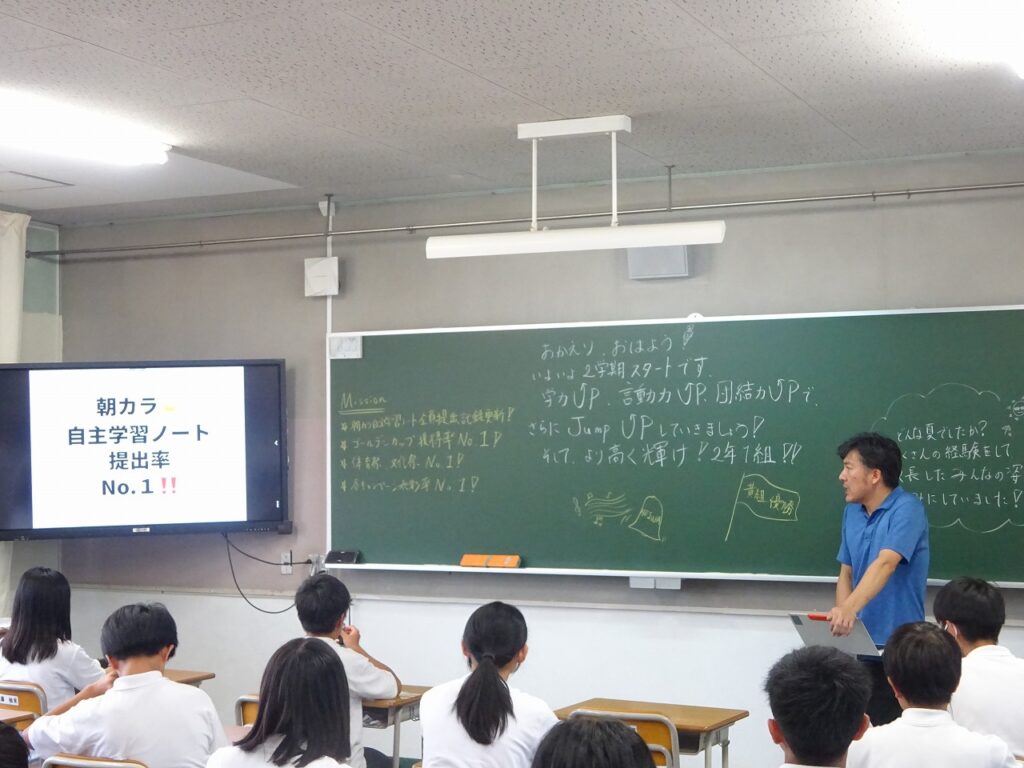 朝カラ
自主学習ノート
提出率
No.1‼
Mission
ゴールデンカップ 獲得率 No.1!
体育祭、文化祭、No.1!
No.1!
おかえり、おはよう!
いよいよ2学期スタートです。
学力UP、言動力UP、団結力UPで、
さらに Jump UPしていきましょう!
そして、より高く輝け!2年1組!!
黄組 優勝
どんな夏でしたか?
くさんの経験をして
長したみんなの姿
みにしていました!